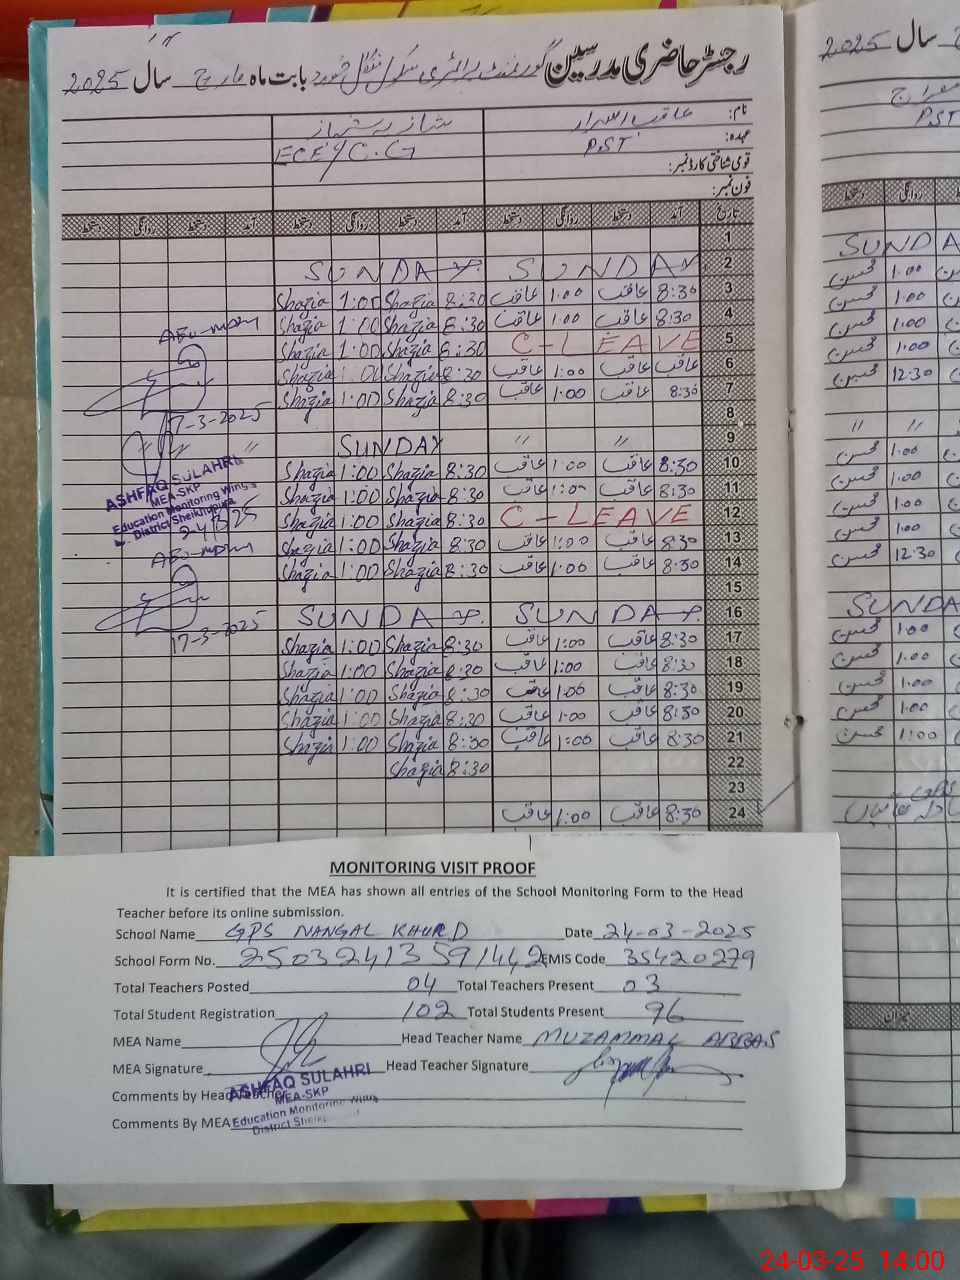 رجسٹر حاضری مدرسین گورنمنٹ پرائمری سکول ننگل خورد بابت ماہ مارچ سال 2025
نام: عاقب اسرار شازیہ شہباز
عہدہ: P.ST ECE/C.G
قومی شناختی کارڈ نمبر:
فون نمبر:
تاریخ آمد دستخط روانگی دستخط آمد دستخط روانگی دستخط آمد دستخط روانگی دستخط
1
2 SUNDAY SUNDAY
3 8:30 عاقب 1:00 عاقب 8:30 Shazia 1:00 Shazia
4 8:30 عاقب 1:00 عاقب 8:30 Shazia 1:00 Shazia
5 C-LEAVE 8:30 Shazia 1:00 Shazia
6 عاقب عاقب 1:00 عاقب 8:30 Shazia 1:00 Shazia
7 8:30 عاقب 1:00 عاقب 8:30 Shazia 1:00 Shazia
8
9 " " SUNDAY
10 8:30 عاقب 1:00 عاقب 8:30 Shazia 1:00 Shazia
11 8:30 عاقب 1:00 عاقب 8:30 Shazia 1:00 Shazia
12 C-LEAVE 8:30 Shazia 1:00 Shazia
13 8:30 عاقب 1:00 عاقب 8:30 Shazia 1:00 Shazia
14 8:30 عاقب 1:00 عاقب 8:30 Shazia 1:00 Shazia
15
16 SUNDAY SUNDAY
17 8:30 عاقب 1:00 عاقب 8:30 Shazia 1:00 Shazia
18 8:30 عاقب 1:00 عاقب 8:30 Shazia 1:00 Shazia
19 8:30 عاقب 1:00 عاقب 8:30 Shazia 1:00 Shazia
20 8:30 عاقب 1:00 عاقب 8:30 Shazia 1:00 Shazia
21 8:30 عاقب 1:00 عاقب 8:30 Shazia 1:00 Shazia
22 8:30 Shazia
23
24 8:30 عاقب 1:00 عاقب
17-3-2025
ASHFAQ SULAHRI
MEA-SKP
Education Monitoring Wing
District Sheikhupura
24/3/25
17-3-2025
سال 2025
P.ST
روانگی دستخط
SUNDA
1:00 محسن
1:00 محسن
1:00 محسن
1:00 محسن
12:30 محسن
" "
1:00 محسن
1:00 محسن
1:00 محسن
1:00 محسن
12:30 محسن
SUNDA
1:00 محسن
1:00 محسن
1:00 محسن
1:00 محسن
1:00 محسن
GPS
میزان
MONITORING VISIT PROOF
It is certified that the MEA has shown all entries of the School Monitoring Form to the Head
Teacher before its online submission.
School Name GPS NANGAL KHURD Date 24-03-2025
School Form No. 25032413591442 EMIS Code 35420279
Total Teachers Posted 04 Total Teachers Present 03
Total Student Registration 102 Total Students Present 96
MEA Name Head Teacher Name MUZAMMAL ABBAS
MEA Signature Head Teacher Signature
Comments by Head Teacher
Comments By MEA
ASHFAQ SULAHRI
MEA-SKP
Education Monitoring Wing
District Sheikhupura
24-03-25 14:00